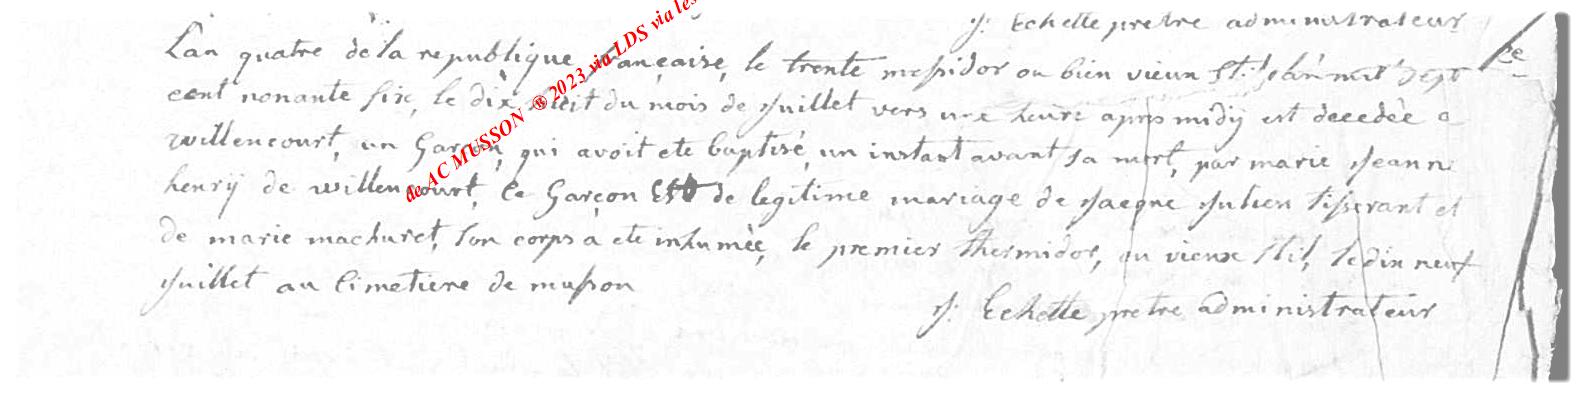 j. Echette pretre administrateur
Lan quatre de la republique française, le trente messidor ou bien vieux stil, l'an mil sept
cent nonante six, le dix huit du mois de juillet vers une heure apres midÿ est decedée a
willencourt, un Garçon, qui avoit eté baptisé, un instant avant sa mort, par marie jeanne
henrÿ de willencourt, ce Garçon Est de legitime mariage de jacque julien tisserant et
de marie machuret, son corps a eté inhumée, le premier thermidor, ou vieux stil, le dix neuf
juillet au Cimetiere de musson
j. Echette pretre administrateur
de AC MUSSON ® 2023 via LDS via les